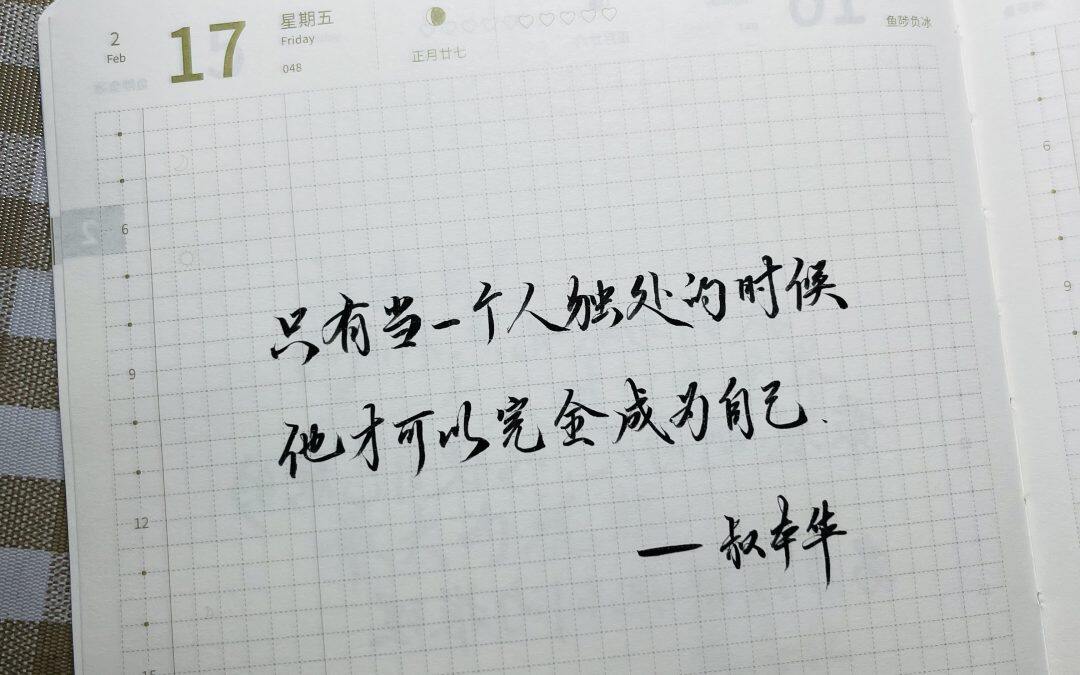 2
Feb
17
星期五
Friday
048
正月廿七
鱼陟负冰
6
9
12
15
只有当一个人独处的时候
他才可以完全成为自己.
—叔本华
6
9